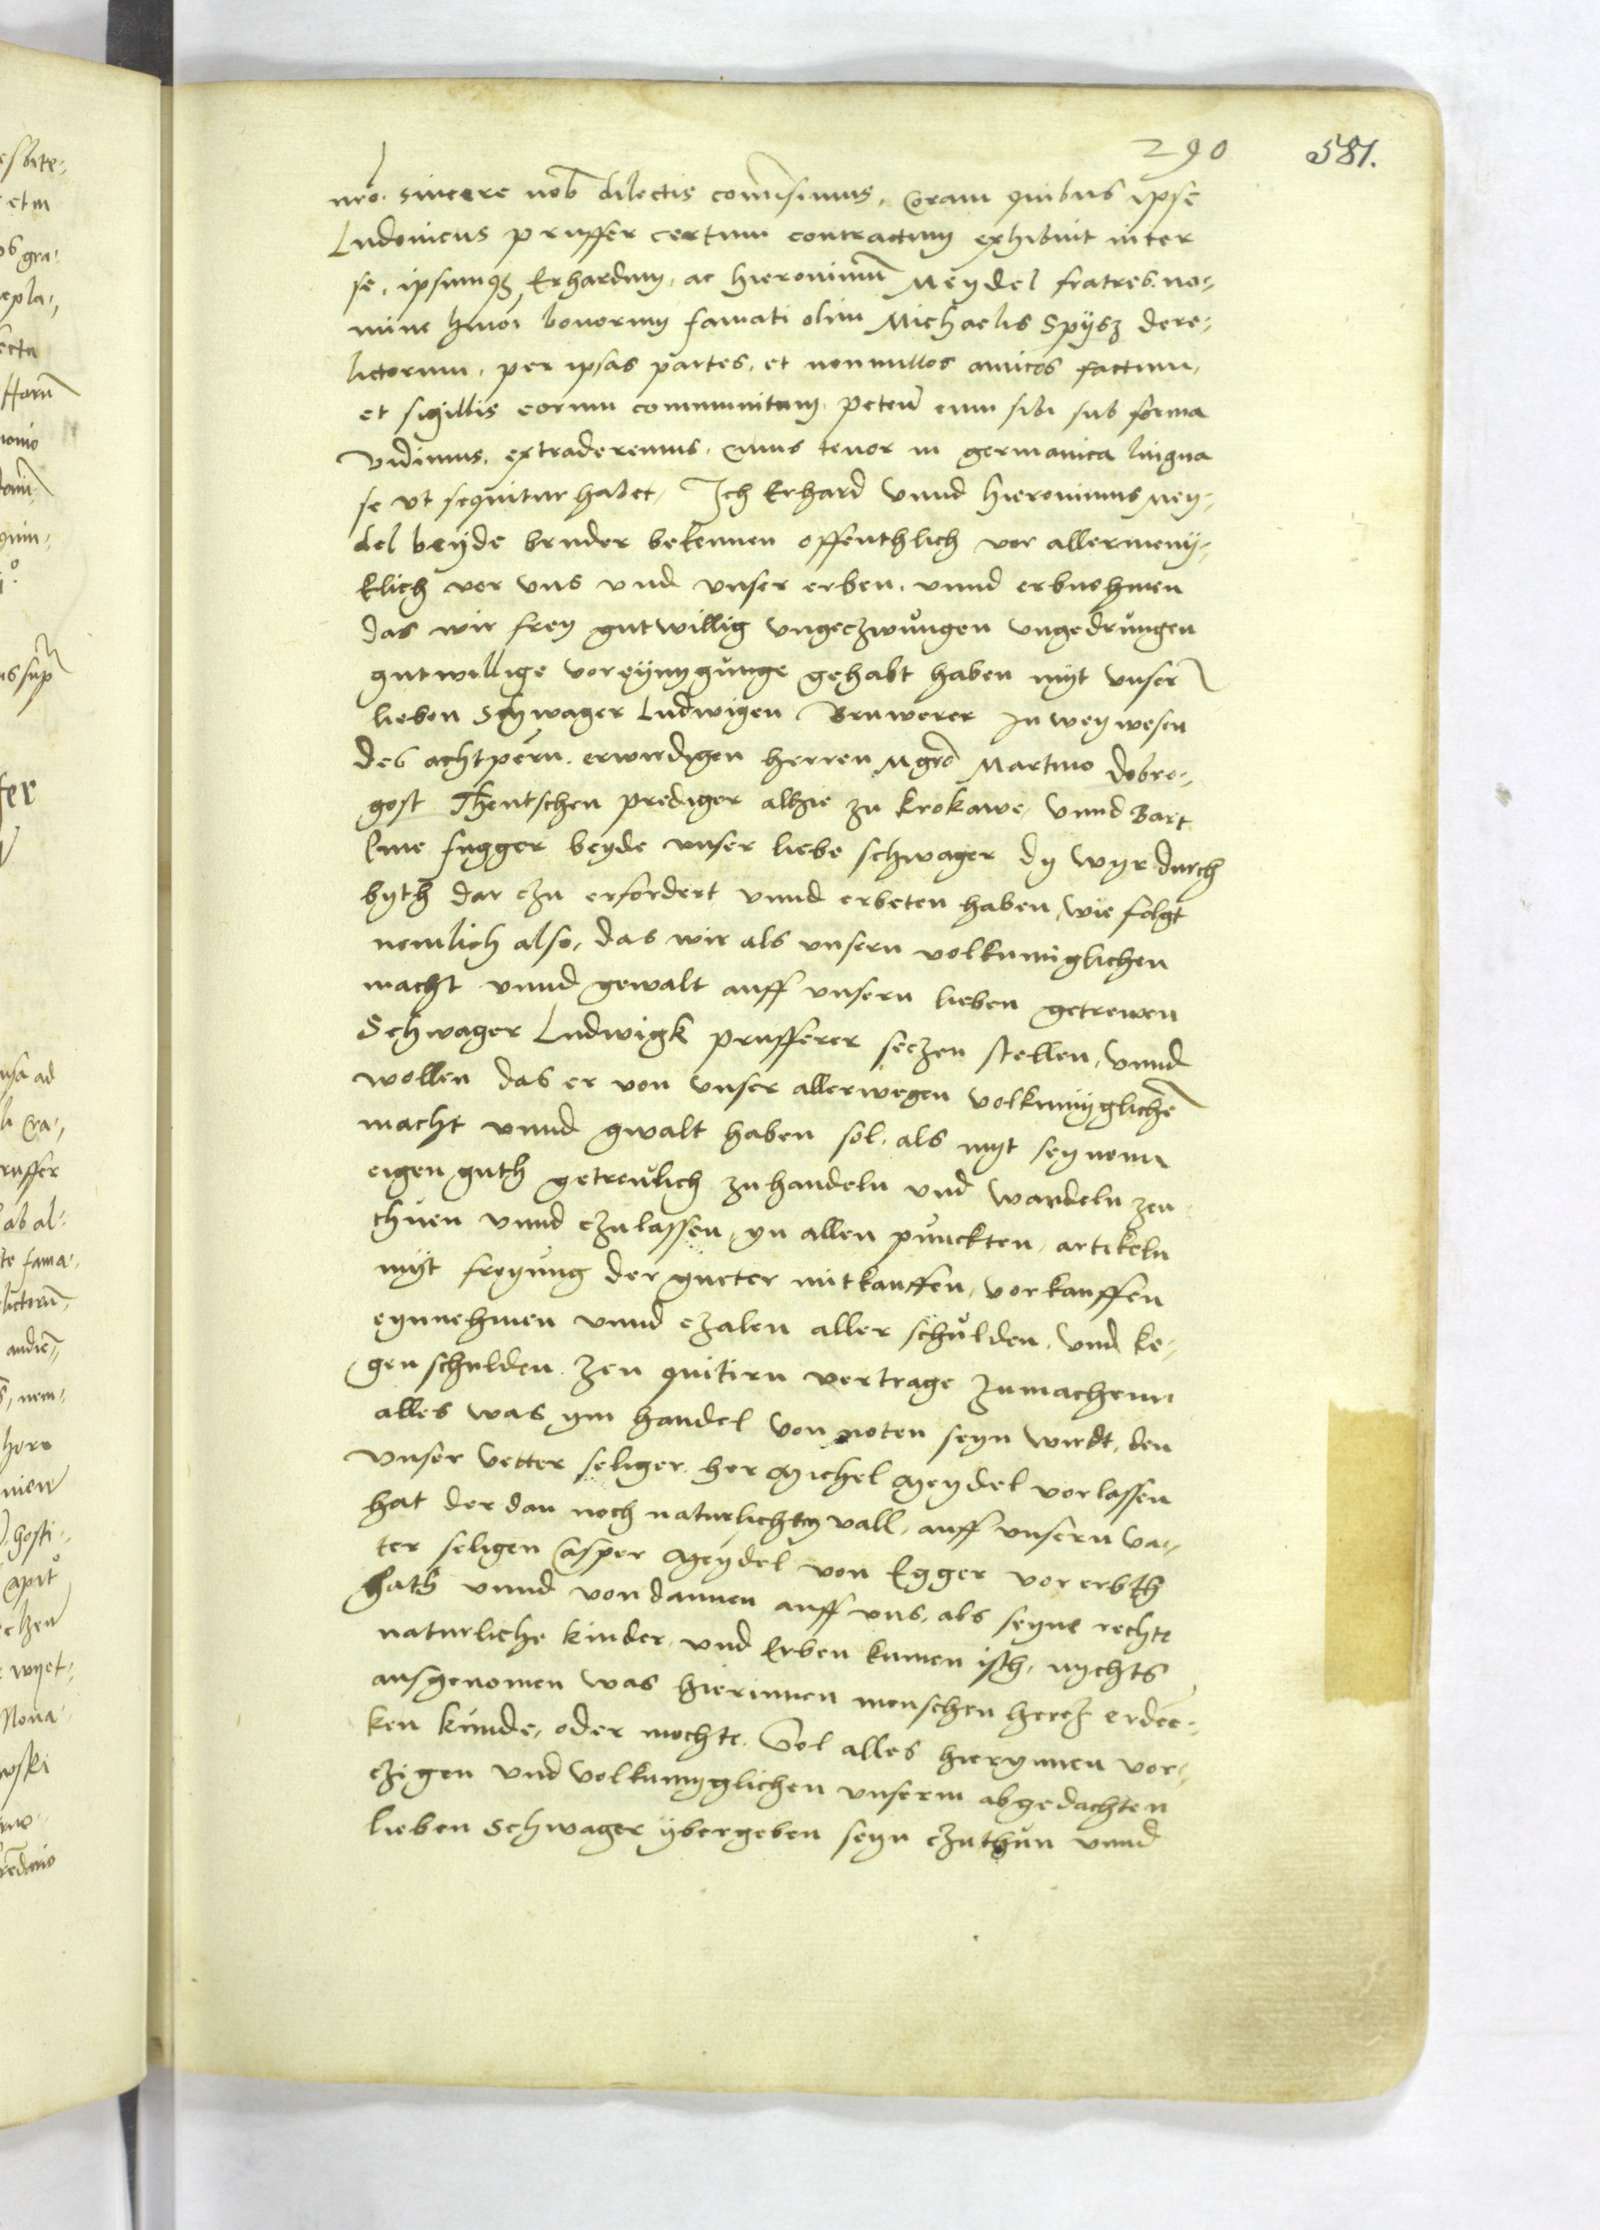 290 581.
nro sincere nob dilectis comisimus, Coram quibus ipse
Ludovicus pruffer certum contractum exhibuit inter
se, ipsumq3 Erhardum, ac Hieronimu Meydel fratres no-
mine hmoi bonorum famati olim Michaelis Spijsz dere-
lictorum, per ipsas partes, et nonnullos amicos factum,
et sigillis eorum communitum, peten eum sibi sub forma
vidimus, extraderemus, cuius tenor in germanica lingua
se vt sequitur habet, Ich Erhard vnnd Hieronimus Mey-
del beyde bruder bekennen offenthlich vor allermeny-
klich vor vns vnd vnser erben, vnnd erbnehmen
das wir frey gutwillig vngeczwungen vngedrungen
gutwillige voreynygunge gehabt haben myt vnser
lieben Schwager Ludwigen Bruwerer in wey wesen
des achtpern, erwirdigen herren Mgro Martino Dobro-
gost Thentschen prediger alhie zu krokawe, vnnd Bart
lme fugger beyde vnser liebe schwager dy wyr durch
byth dar czu erfordert vnnd erbeten haben, wie folgt
nemlich also, das wir als vnsern volkumiglichen
macht vnnd gewalt auff vnsern lieben getrewen
Schwager Ludwigk prufferer seczen stellen, vnnd
wollen das er von vnser allerwegen volkumyglichen
macht vnnd gwalt haben sol, als myt seynem
eigen guth getreulich zu handeln vnd wandeln zen
thuen vnnd czulassen, yn allen punckten, artikeln
myt freyung der gueter mitkauffen, vorkauffen
eynnehmen vnnd czalen aller schulden, vnd ke-
gen schulden zen quitirn vertrage zumachenn
alles was ym handel von noten seyn wirdt, den
vnser vetter seliger her Michel Meydel vorlassen
hat der dan noch naturlichem vall, auff vnsern va-
ter seligen Casper Meydel von Egger vor erbth
hath vnnd von dannen auff vns, als seyne rechte
naturliche kinder, vnd Erben kumen isth, nychts
ausgenomen was hierinnen menschen hercz erdec-
ken kunde, oder mochte. Sol alles hierynnen vor-
czigen vnd volkumyglichen vnserm abgedachten
lieben Schwager ybergeben seyn czuthun vnnd